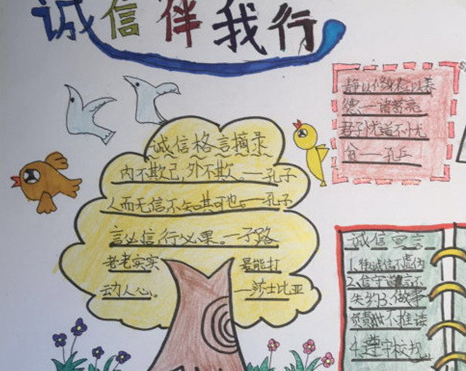 诚信伴我行
诚信格言摘录
内不欺己,外不欺——孔子
人而无信不知其可也。——孔子
言必信,行必果。——子路
老老实实 最能打
动人心。——莎士比亚
静以修身俭以养
德——诸葛亮
君子忧道不忧
贫——孔丘
诚信宣言
2.信守诺言不
失约3.做事
负责不推诿
4.遵守校规